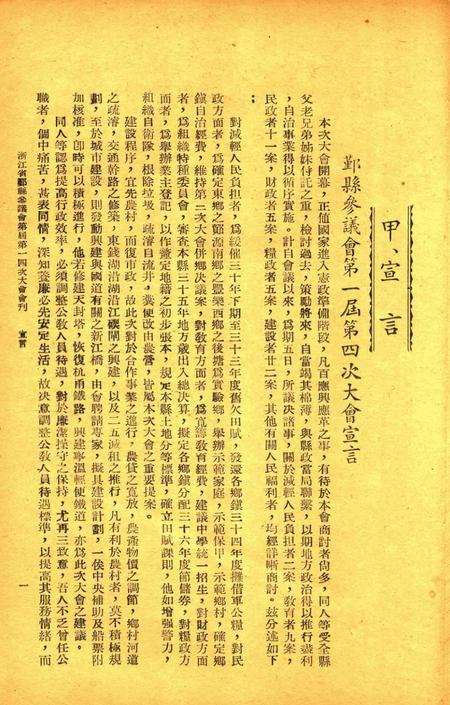 甲、宣言
鄞縣參議會第一屆第四次大會宣言
本次大會開幕，正値國家進入憲政準備階段，凡百應興應革之事，有待於本會商討者尙多，同人等受全縣
父老兄弟姊妹付託之重，檢討過去，策勵將來，自當竭其棉薄，與縣政當局聯繫，以期地方政治得以推行盡利
，自治事業得以循序實施。計自會議以來，爲期五日，所議決諸事，關於減輕人民負担者二案，敎育者九案，
民政者十一案，財政者五案，糧政者五案，建設者廿二案，其他有關人民福利者，均經詳晰商討。茲分述如下
：
對減輕人民負担者，爲緩催三十年下期至三十三年度舊欠田賦，發還各鄉鎭三十四年度攤借軍公糧，對民
政方面者，爲確定東鄉之韶源南鄉之豐樂西鄉之後塘爲實驗鄉，舉辦示範家庭，示範保甲，示範鄉村，確定鄉
鎭自治經費，維持第二次大會併鄉決議案，對敎育方面者，爲寬籌敎育經費，建議中學統一招生，對財政方面
者，爲組織特種委員會，審查本縣三十五年地方歲出入總決算，擬定各鄉鎭分配三十六年度節儲券，對糧政方
面者，爲舉辦業主登記，以作釐定地籍之初步張本，規定本縣土地分等標準，確立田賦課則，他如增强警力，
組織自衛隊，根除垃圾，疏濬自流井，糞便改由農營，皆屬本次大會之重要提案。
建設程序，宜先農村，而復市政，故此次對於合作事業之進行，農貸之寬放，農產物價之調節，鄉村河道
之疏濬，交通幹路之修築，東錢湖沿湖沿江碶閘之興建，以及二五減租之推行，凡有利於農村者，莫不積極規
劃，至於城市建設，則發動興建與國道有關之新江橋，由會聘請專家，擬具建設計劃，一俟中央補助及船票附
加核准，卽時可以積極進行，他若修建天封塔，恢復杭甬鐵路，興建寧溫輕便鐵道，亦爲此次大會之建議。
同人等認爲提高行政效率，必須調整公敎人員待遇，對於廉潔操守之保持，尤再三致意，吾人不乏曾任公
職者，個中痛苦，甚表同情，深知養廉必先安定生活，故決意調整公敎人員待遇標準，以提高其服務情緒，而
浙江省鄞縣參議會第一屆第四次大會會刊　宣言
一